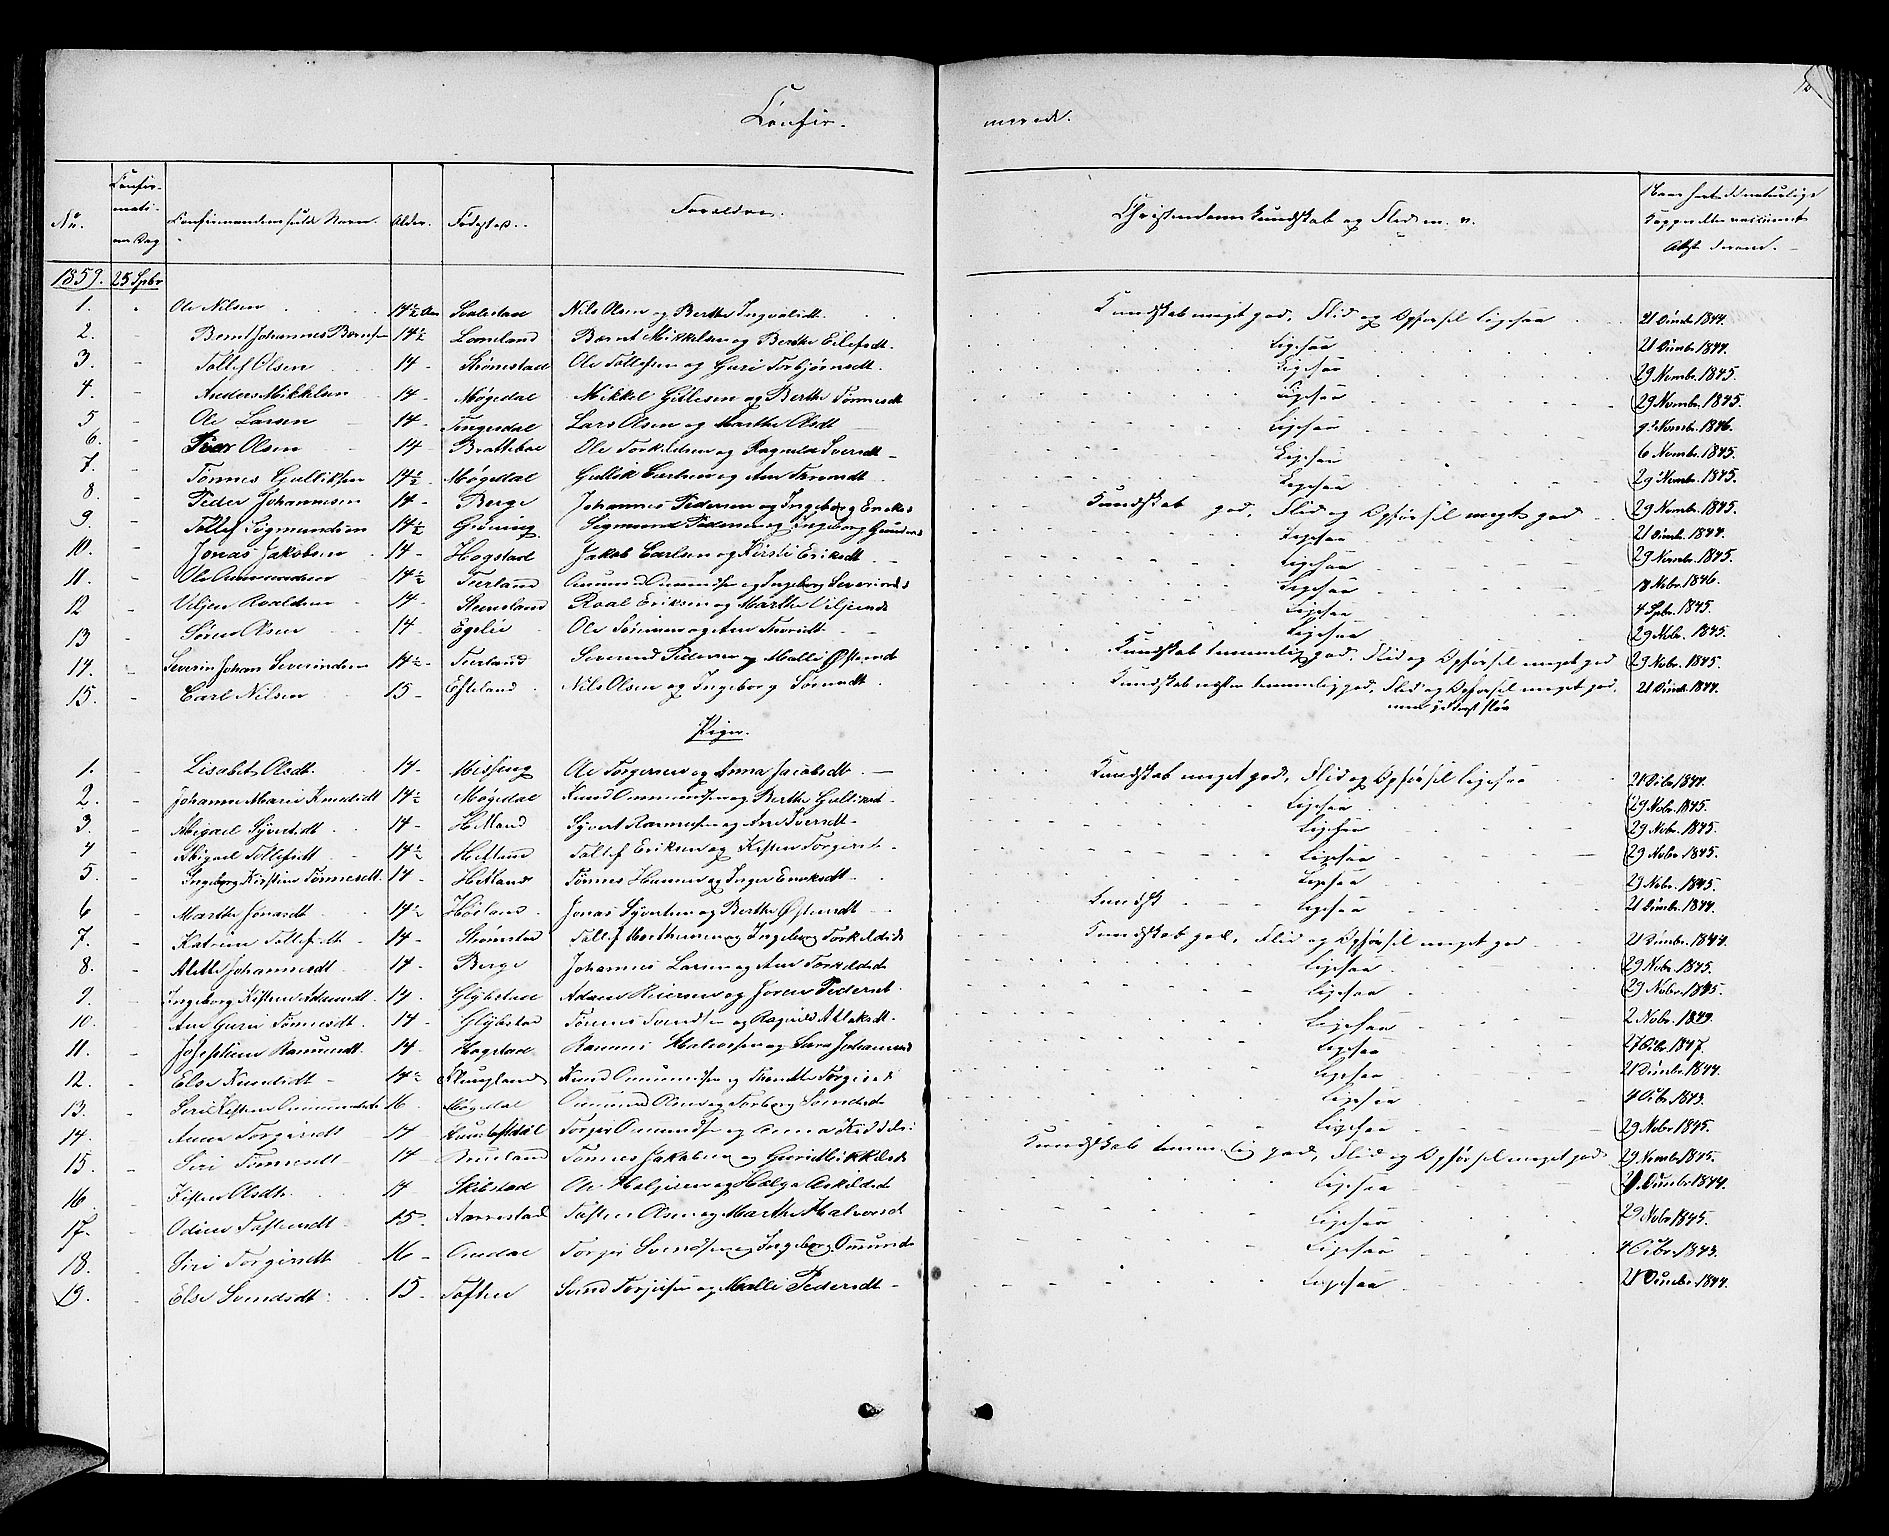 Confir-
merede.
No.
Confir-
mati-
ons Dag
Confirmandens fulde Navn.
Alder.
Fødested.
Forældre.
Christendoms Kundskab og Flid m. v.
Naar havt de naturlige
Kopper eller vaccineret
Attest derom.
1859. 25 Spbr
1. Ole Nilsen 14½ Svalestad Nils Olsen og Berthe Ingvaldt. Kundskab meget god, Flid og Opførsel ligesaa 21 Decmbr 1844.
2. Bernt Johannes Berntsen 14½ Lomeland Bernt Mikkelsen og Berthe Eilefsdt. Ligesaa 21 Decmbr. 1844.
3. Tollef Olsen 14 - Strømstad Ole Tollefsen og Guri Torbjørnsdt. Ligesaa 29 Novmbr. 1845.
4. Anders Mikkelsen 14 - Møgedal Mikkel Gitlesen og Berthe Tønnesdt Ligesaa 29 Novmbr. 1845.
5 Ole Larsen 14 - Tingedal Lars Olsen og Marthe Olsdt Ligesaa 9 Novmbr. 1846.
6. Peder Olsen 14 Bratteboe Ole Torkildsen og Ragnilde Sversdt Ligesaa 6 Novmbr. 1845.
7. Tønnes Gulliksen 14½ Møgedal Gullik Carlsen og Ane Ligesaa 29 Novmbr. 1845.
8. Peder Johannesen 14 - Berge Johannes Pedersen og Ingeborg Eriks Kundskab god, Flid og Opførsel meget god 29 Novmbr. 1845.
9. Tollef Sigmundsen 14½ Grøning Sigmund Pedersen og Ingeborg Ligesaa 21 Decmbr. 1844.
10. Jonas Jakobsen 14 - Hogstad Jakob Carlsen og Kirsti Eriksdt. Ligesaa 29 Novmbr. 1845.
11. Ole Omundsen 14½ Tierland Omund Omundsen og Ingeborg Severinds Ligesaa 18 Nobr. 1846.
12 Viljen Roaldsen 14. Steensland Roal Eriksen og Marthe Viljends Ligesaa 4 Spbr. 1845.
13 Søren Olsen 14. Egelie Ole Sørensen og Ane Ligesaa 29 Nobr. 1845.
14. Severin Johan Severindsen 14½ Tierland Severind Pedersen og Malli Østends Kundskab temmelig god, Flid og Opførsel meget god 29 Nobr. 1845.
15. Carl Nilsen 15 - Efteland Nils Olsen og Ingeborg Sørensdt Kundskab næsten temmelig god, Flid og Opførsel meget god, 21 Decmbr 1844.
men yderst sløv
Piger.
1. Lisabet Olsdt. 14. Messing Ole Torgersen og Anna Jacobsdt. Kundskab meget god, Flid og Opførsel ligesaa 21 Debr 1844.
2. Johanne Marie Knudsdt 14½ Møgedal Knud Omundsen og Berthe Gulliksdt. Ligesaa 29 Nobr. 1845.
3. Abigael Syvertsdt 14. Hetland Syvert Rasmussen og Ane Iversdt. Ligesaa 29 Nobr. 1845.
4 Abigael Tollefsdt 14½ Hetland Tollef Eriksen og Kisten Torgersdt. Ligesaa 29 Nobr. 1845.
5. Ingeborg Kirstine Tønnesdt. 14 Hetland Tønnes Hansen og Inger Eriksdt. Ligesaa 29 Nobr. 1845.
6 Marthe Jonasdt 14½ Høiland. Jonas Syvertsen og Berthe Østensdt Kundsk. Ligesaa 21 Decmbr. 1844.
7. Katrine Tollefsdt. 14. Strømstad Tollef Mortensen og Ingeborg Torkildsdt Kundskab god, Flid og Opførsel meget god 21 Decmbr. 1844.
8. Alette Johannesdt 14. Berge Johannes Larsen og Ane Torkildsdt Ligesaa 29 Nobr. 1845.
9. Ingeborg Kistine Adamsdt. 14. Glybstad Adam Reiersen og Joren Pedersdt. Ligesaa 29 Nobr. 1845.
10. Ane Guri Tønnesdt. 14. Glybstad Tønnes Svendsen og Ragnild Atlaksdt. Ligesaa 2 Nobr. 1849.
11. Josefine Rasmusdt. 14. Hogstad Rasmus Halvorsen og Sara Johannesdt Ligesaa 27 Octbr. 1847.
12. Else Knudsdt 14½ Skungland Knud Omundsen og Torgersdt Ligesaa 21 Decmbr. 1844.
13. Siri Kistine Omundsdt 16. Møgedal Omund Olsen og Torborg Svendsdt Ligesaa 4 Octbr. 1843.
14. Anna Torgersdt 14 Torger Omundsen og Anna Ligesaa 29 Nobr 1845.
15. Siri Tønnesdt 14 Tønnes Jakobsen og Guri Mikkelsdt Kundskab temmelig god, Flid og Opførsel meget god 29 Novmbr 1845.
16 Kisten Olsdt. 14 Skibstad Ole Helgesen og Helga Askildsdt Ligesaa 21 Decmbr 1844.
17. Odine Tostensdt. 15. Aarrestad Tosten Olsen og Marthe Halvorsdt Ligesaa 29 Nobr. 1845.
18. Siri Torgersdt 16 - Omdal Torger Svendsen og Ingeborg Omunds Ligesaa 4 Octbr. 1843.
19. Else Svendsdt. 15. Toften Svend Torjusen og Malli Pedersdt - Ligesaa 21 Decmbr. 1844.